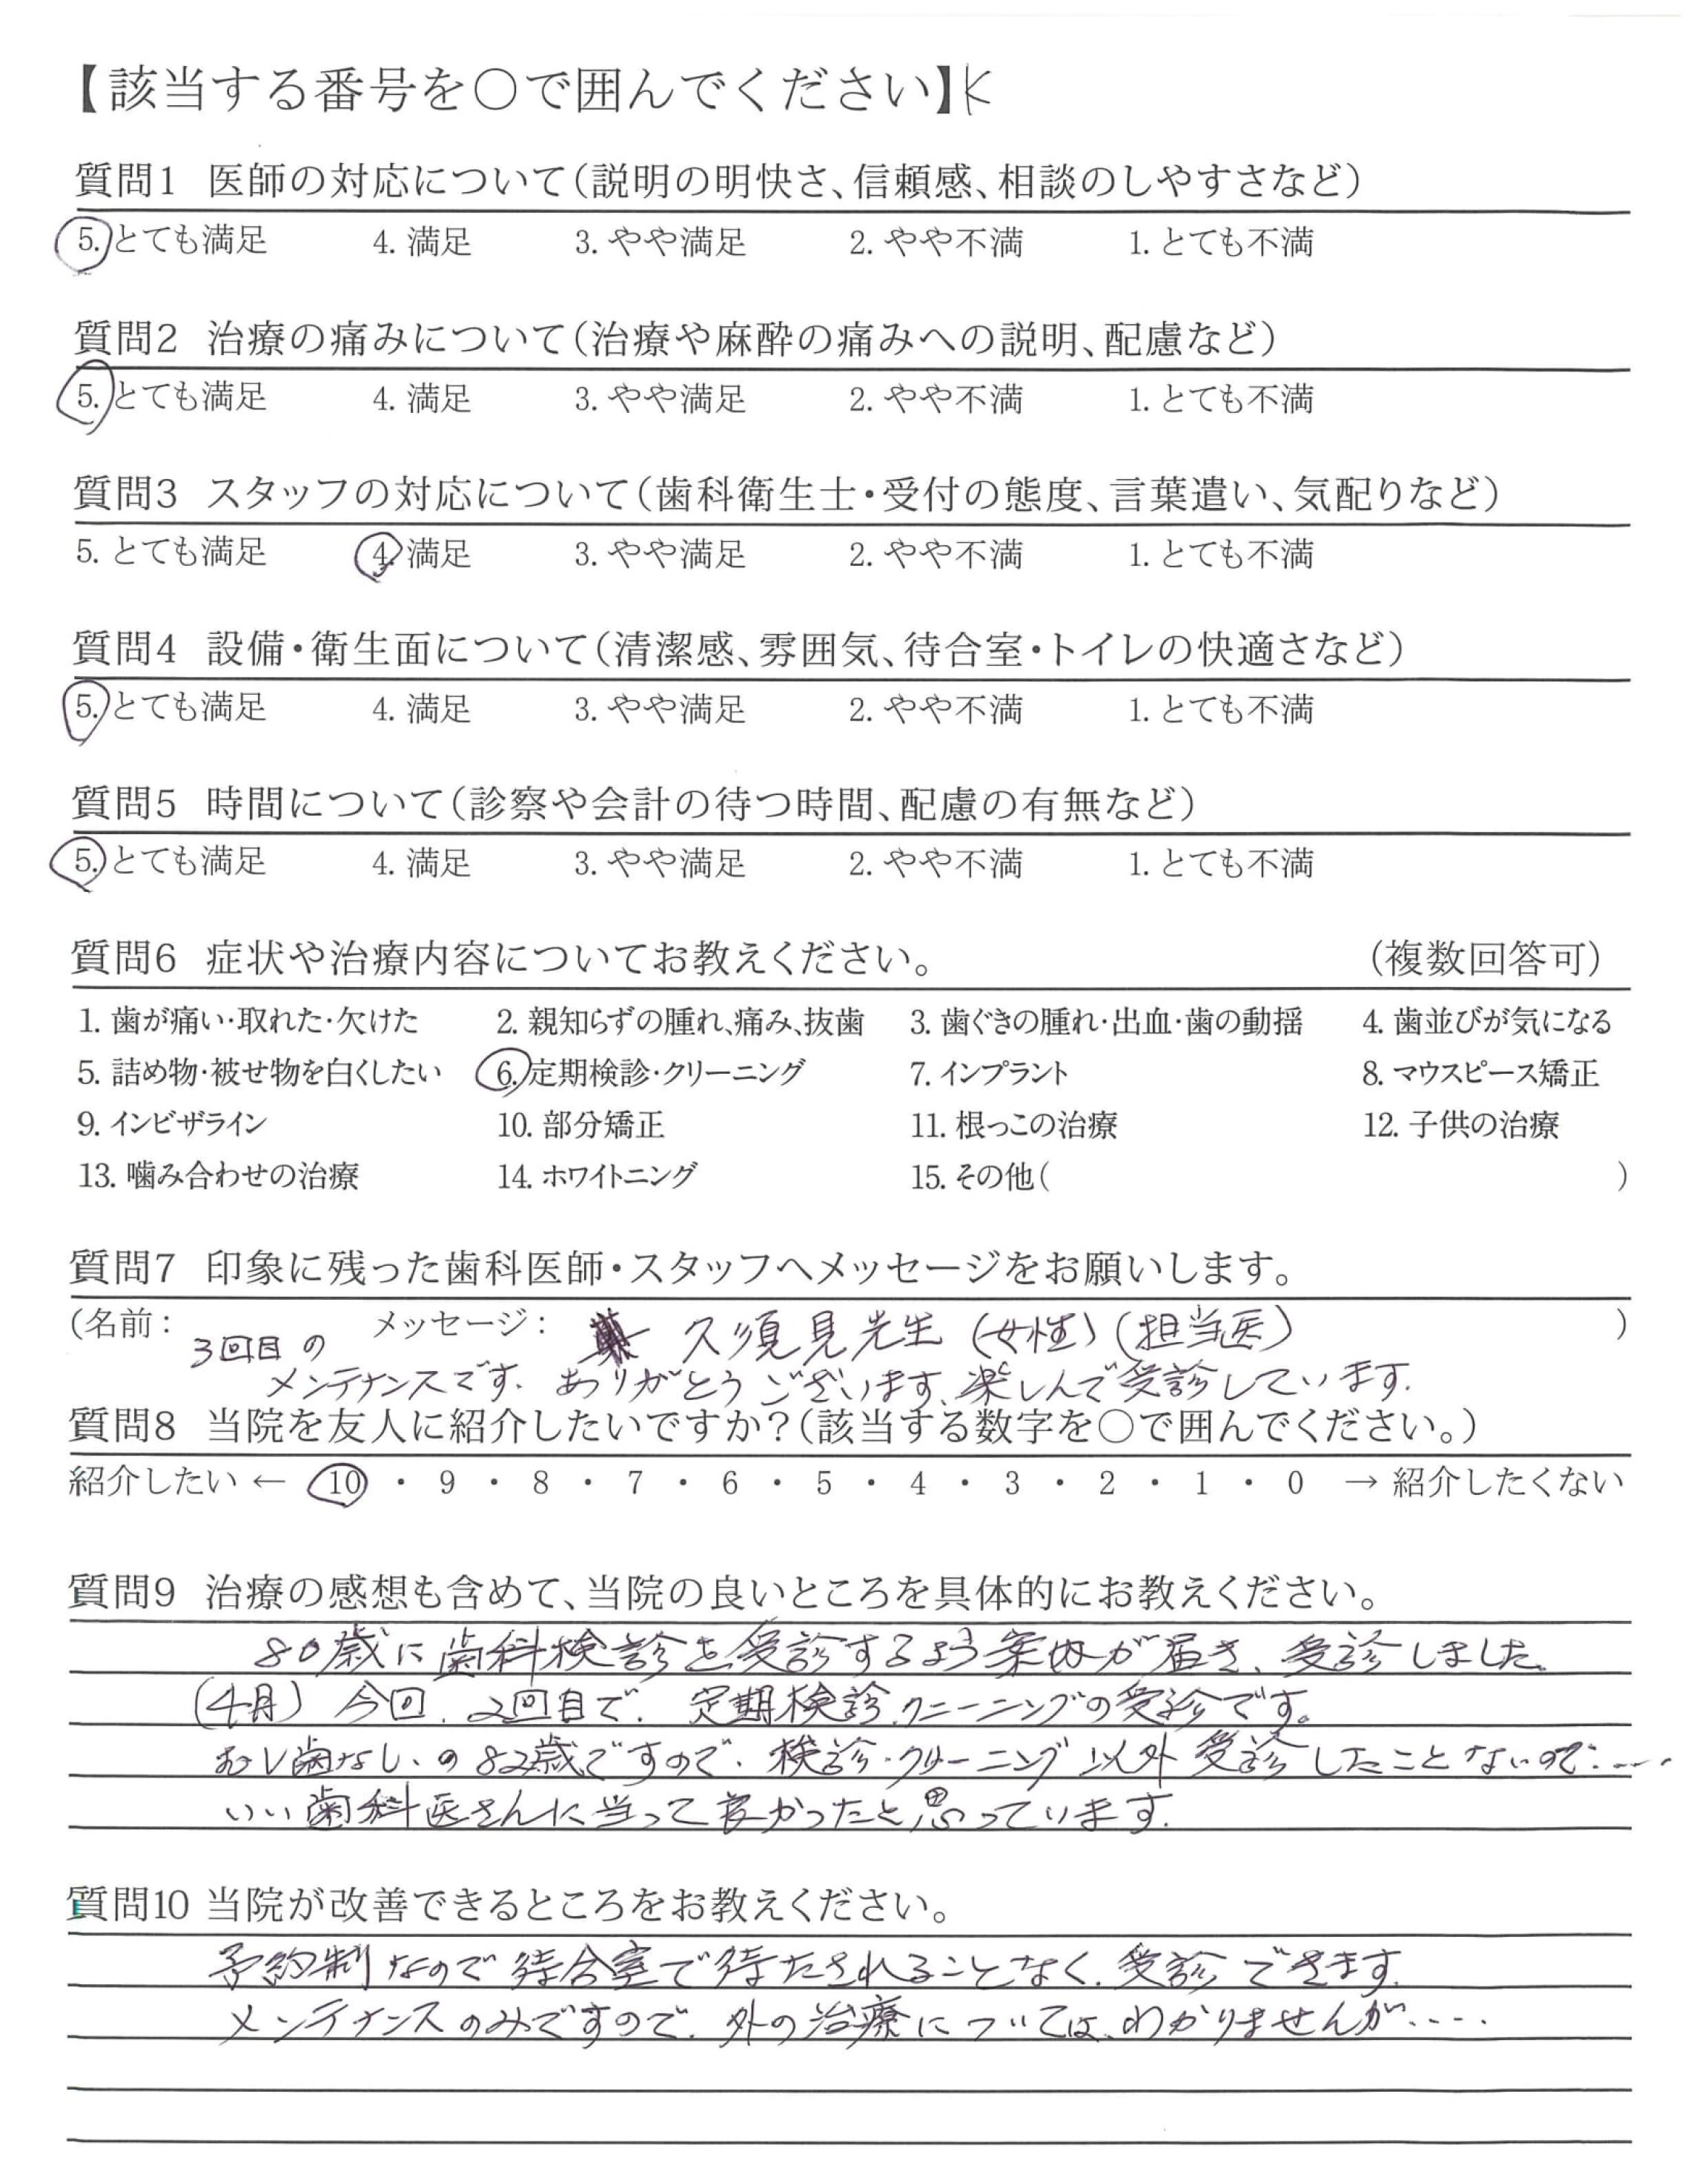 【該当する番号を○で囲んでください】K
質問1 医師の対応について(説明の明快さ、信頼感、相談のしやすさなど)
5. とても満足 4. 満足 3. やや満足 2. やや不満 1. とても不満
質問2 治療の痛みについて(治療や麻酔の痛みへの説明、配慮など)
5. とても満足 4. 満足 3. やや満足 2. やや不満 1. とても不満
質問3 スタッフの対応について(歯科衛生士・受付の態度、言葉遣い、気配りなど)
5. とても満足 4. 満足 3. やや満足 2. やや不満 1. とても不満
質問4 設備・衛生面について(清潔感、雰囲気、待合室・トイレの快適さなど)
5. とても満足 4. 満足 3. やや満足 2. やや不満 1. とても不満
質問5 時間について(診察や会計の待つ時間、配慮の有無など)
5. とても満足 4. 満足 3. やや満足 2. やや不満 1. とても不満
質問6 症状や治療内容についてお教えください。 (複数回答可)
1. 歯が痛い・取れた・欠けた 2. 親知らずの腫れ、痛み、抜歯 3. 歯ぐきの腫れ・出血・歯の動揺 4. 歯並びが気になる
5. 詰め物・被せ物を白くしたい 6. 定期検診・クリーニング 7. インプラント 8. マウスピース矯正
9. インビザライン 10. 部分矯正 11. 根っこの治療 12. 子供の治療
13. 噛み合わせの治療 14. ホワイトニング 15. その他( )
質問7 印象に残った歯科医師・スタッフへメッセージをお願いします。
(名前: メッセージ: 久須見先生 (女性) (担当医) )
3回目の
メンテナンスです. ありがとうございます. 楽しんで受診しています.
質問8 当院を友人に紹介したいですか?(該当する数字を○で囲んでください。)
紹介したい ← 10 ・ 9 ・ 8 ・ 7 ・ 6 ・ 5 ・ 4 ・ 3 ・ 2 ・ 1 ・ 0 → 紹介したくない
質問9 治療の感想も含めて、当院の良いところを具体的にお教えください。
80歳に歯科検診を受診するよう案内が届き、受診しました.
(4月) 今回. 2回目で. 定期検診.クニーニングの受診です。
むし歯なし.の82歳ですので. 検診・クリーニング以外受診したことないので.....
いい歯科医さんに当って良かったと思っています.
質問10 当院が改善できるところをお教えください。
予約制なので待合室で待たされることなく.受診できます.
メンテナンスのみですので. 外の治療については、わかりませんが....